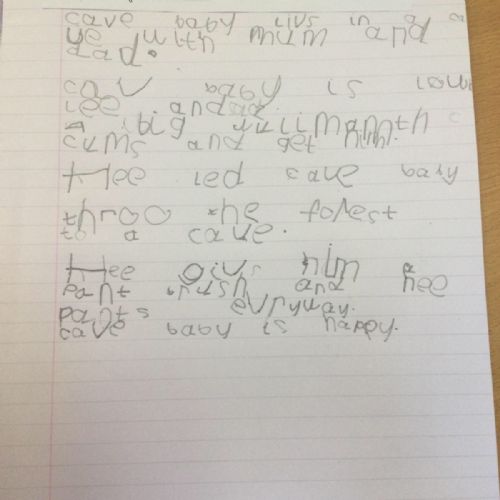 cave baby livs in a
ve with mum and
dad.
cav baby is
lee and
a big mamuth
cums and get him.
Hee led cave baby
throo the forest
to a cave.
Hee givs him a
pant brush and hee
pants evryway.
cave baby is happy.